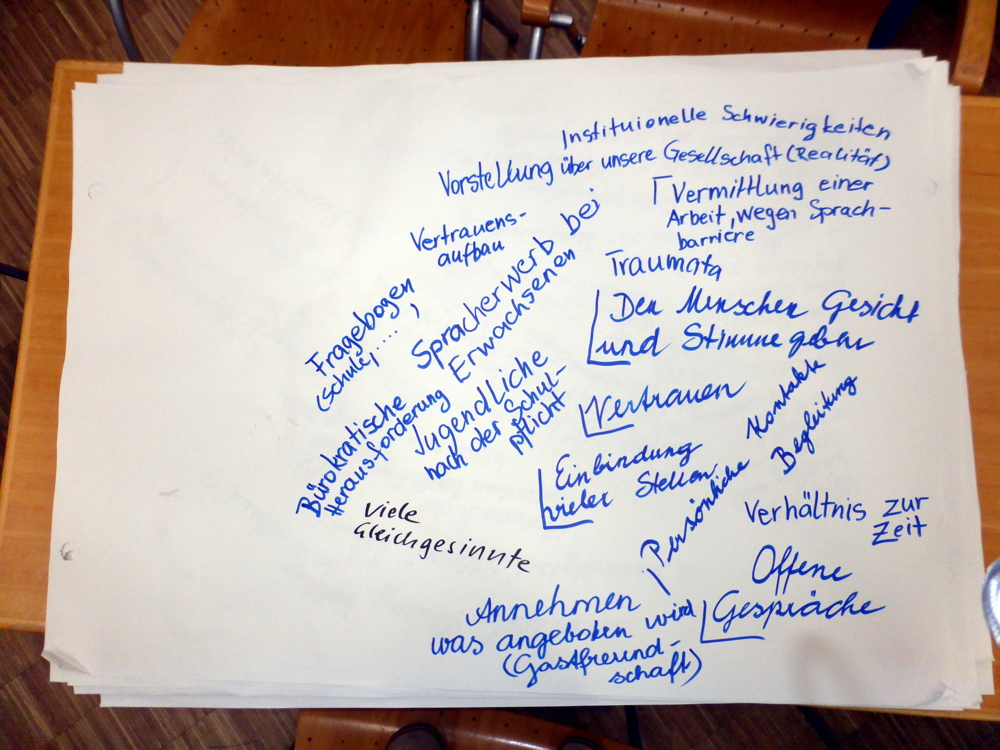 Instituionelle Schwierigkeiten
Vorstellung über unsere Gesellschaft (Realität)
Vermittlung einer
Arbeit, wegen Sprach-
barriere
Vertrauens-
aufbau
Spracherwerb bei
Erwachsenen
Traumata
Den Menschen Gesicht
und Stimme geben
Fragebogen
(Schule, .... )
Bürokratische
Herausforderung
Jugendliche
nach der Schul-
pflicht
Vertrauen
Einbindung
vieler Stellen
Persönliche Kontakte
Begleitung
viele
Gleichgesinnte
Verhältnis zur
Zeit
Offene
Gespräche
Annehmen
was angeboten wird
(Gastfreund-
schaft)